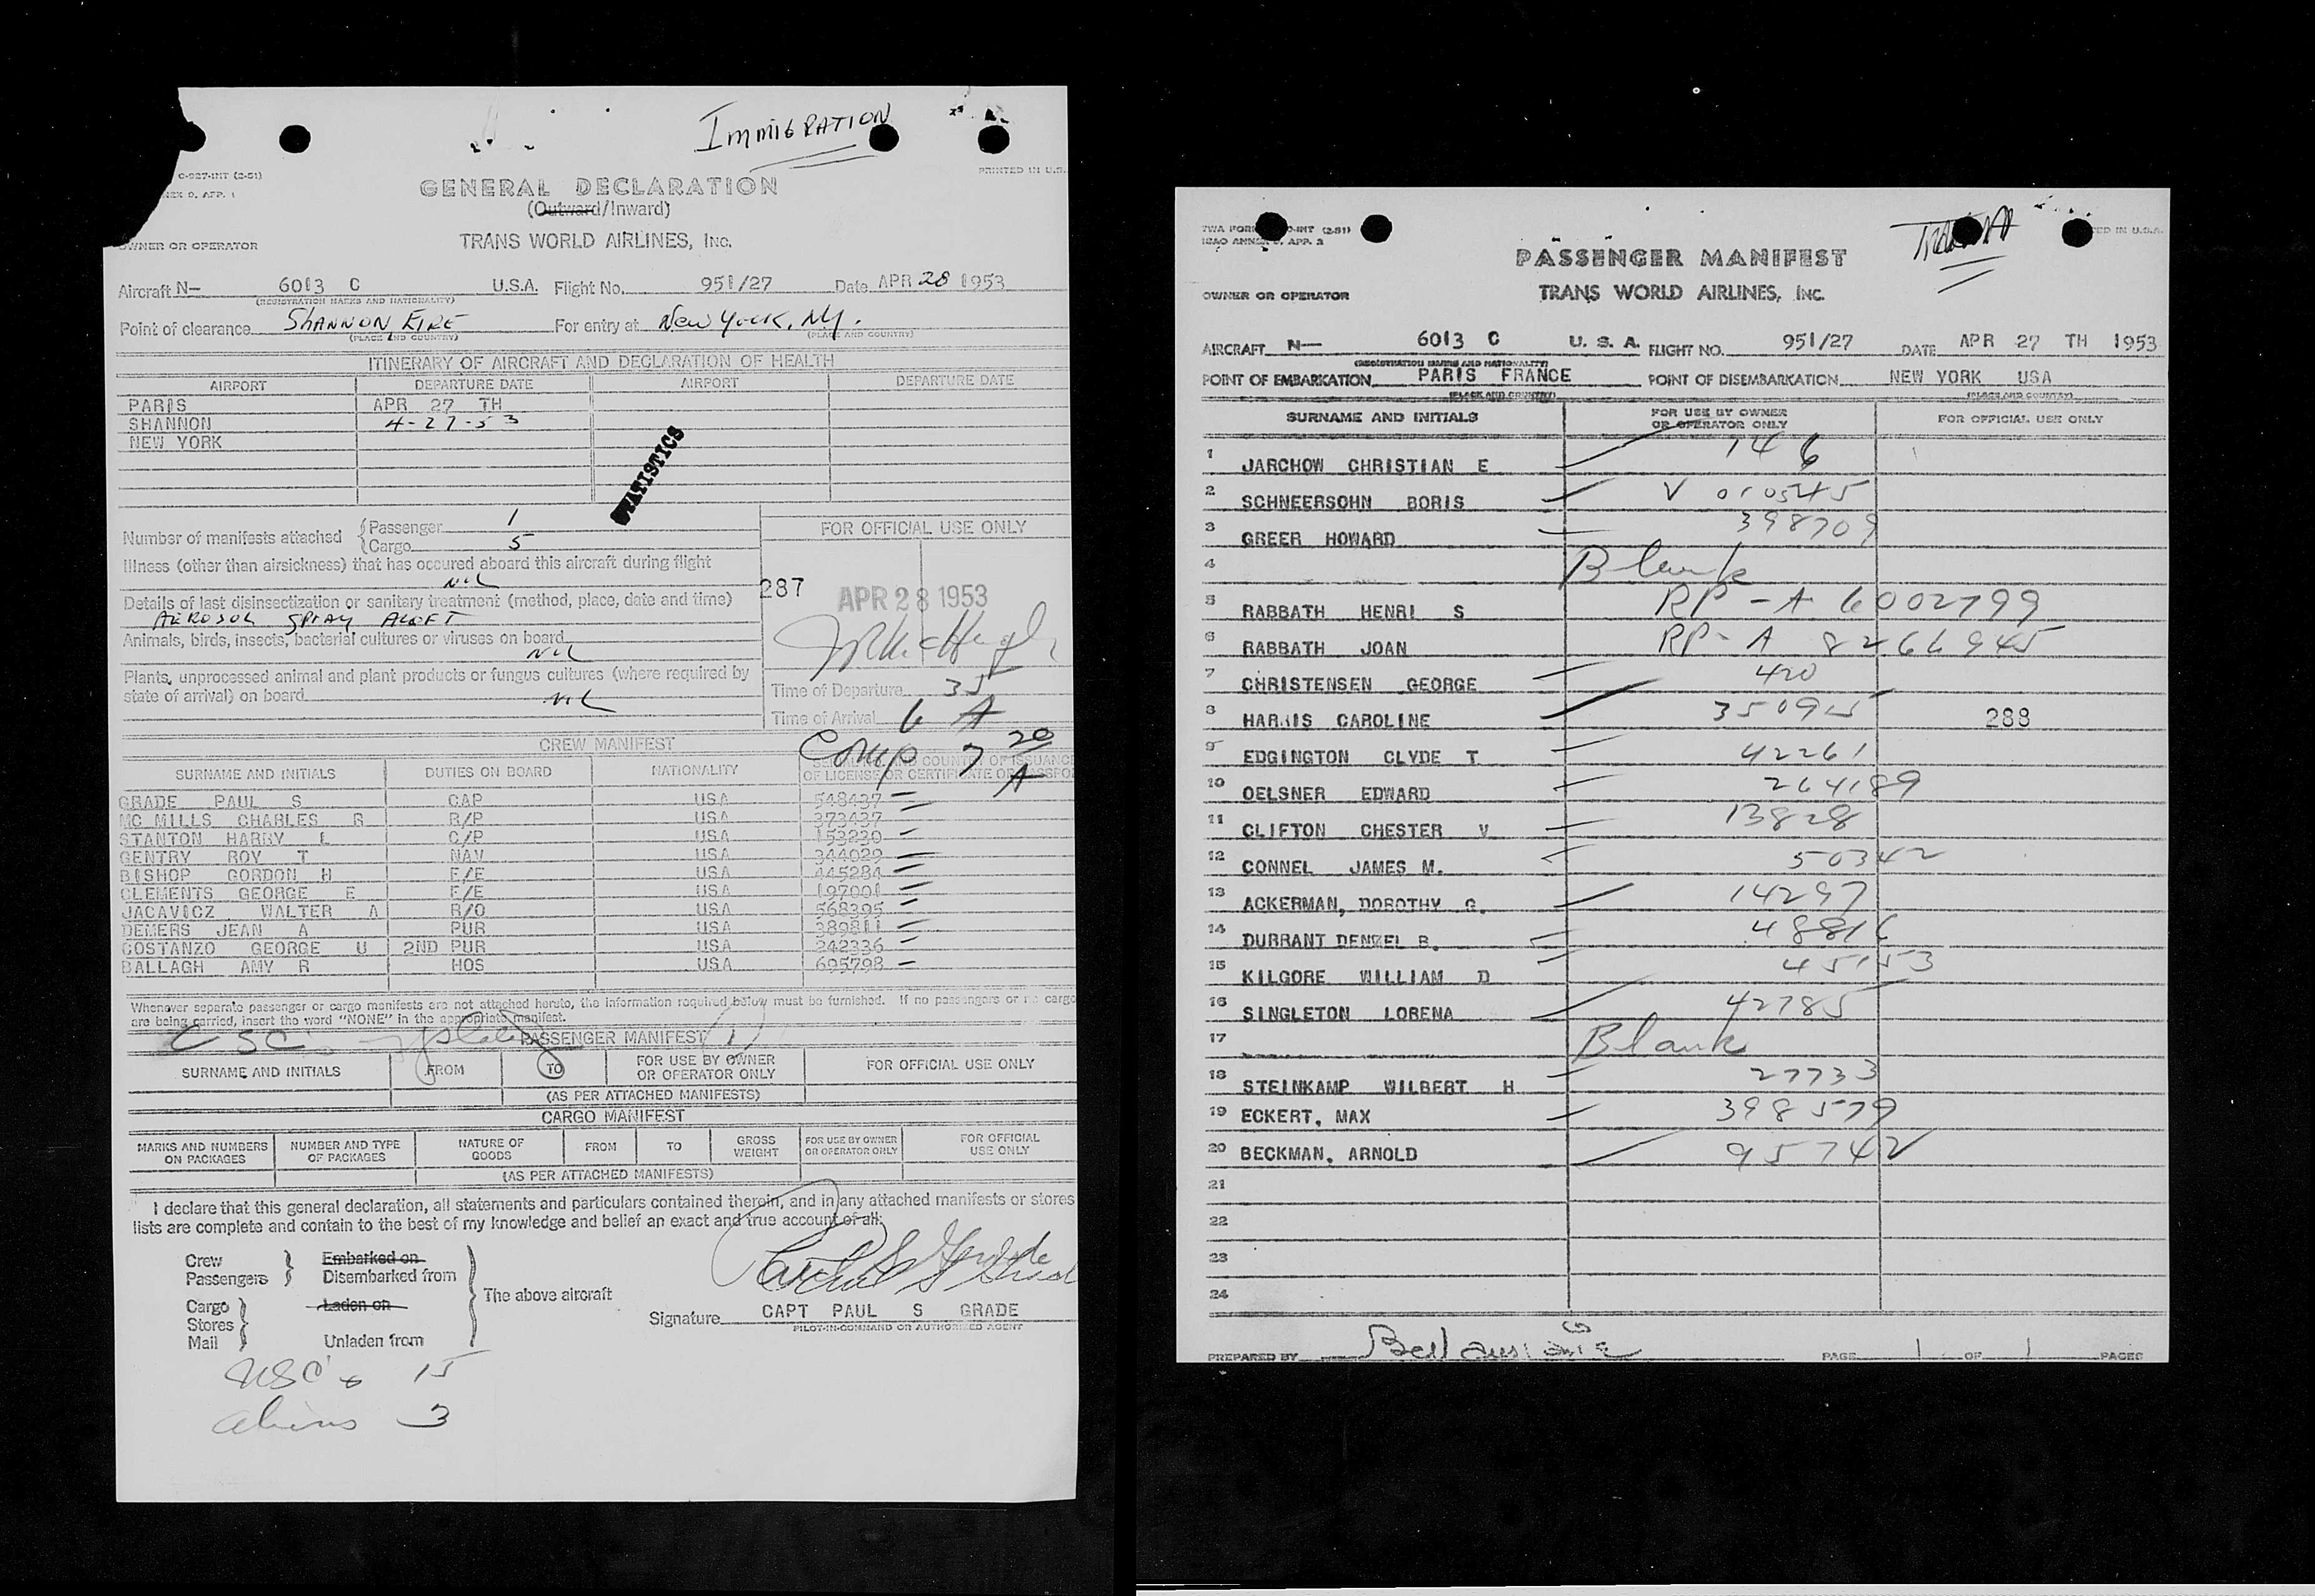 IMMIGRATION
C-927-INT (2-51)
PRINTED IN U.S.
GENERAL DECLARATION
(Outward/Inward)
OWNER OR OPERATOR TRANS WORLD AIRLINES, INC.
Aircraft N— 6013 C U.S.A. Flight No. 951/27 Date APR 28 1953
(REGISTRATION MARKS AND NATIONALITY)
Point of clearance SHANNON, EIRE For entry at New York, NY.
(PLACE AND COUNTRY) (PLACE AND COUNTRY)
ITINERARY OF AIRCRAFT AND DECLARATION OF HEALTH
AIRPORT DEPARTURE DATE AIRPORT DEPARTURE DATE
PARIS APR 27 TH
SHANNON 4-27-53
NEW YORK
STATISTICS
Number of manifests attached {Passenger 1
{Cargo 5
FOR OFFICIAL USE ONLY
Illness (other than airsickness) that has occured aboard this aircraft during flight
NIL
287 APR 28 1953
Details of last disinsectization or sanitary treatment (method, place, date and time)
AEROSOL SPRAY ALOFT
Animals, birds, insects, bacterial cultures or viruses on board
NIL
Plants, unprocessed animal and plant products or fungus cultures (where required by
state of arrival) on board NIL
Time of Departure 35
Time of Arrival 6 A
Comp 7 20 A
CREW MANIFEST
SURNAME AND INITIALS DUTIES ON BOARD NATIONALITY COUNTRY OF ISSUANCE
OF LICENSE OR CERTIFICATE OR
GRADE PAUL S CAP USA 548437
MC MILLS CHARLES R R/P USA 373437
STANTON HARRY L C/P USA 153230
GENTRY ROY T NAV USA 344029
BISHOP GORDON H E/E USA 445284
CLEMENTS GEORGE E E/E USA 197001
JACAVICZ WALTER A R/O USA 568395
DEMERS JEAN A PUR USA 389811
COSTANZO GEORGE U 2ND PUR USA 242336
BALLAGH AMY R HOS USA 695798
Whenever separate passenger or cargo manifests are not attached hereto, the information required below must be furnished. If no passengers or no cargo
are being carried, insert the word "NONE" in the appropriate manifest.
PASSENGER MANIFEST
SURNAME AND INITIALS FROM TO FOR USE BY OWNER OR OPERATOR ONLY FOR OFFICIAL USE ONLY
(AS PER ATTACHED MANIFESTS)
CARGO MANIFEST
MARKS AND NUMBERS ON PACKAGES NUMBER AND TYPE OF PACKAGES NATURE OF GOODS FROM TO GROSS WEIGHT FOR USE BY OWNER OR OPERATOR ONLY FOR OFFICIAL USE ONLY
(AS PER ATTACHED MANIFESTS)
I declare that this general declaration, all statements and particulars contained therein, and in any attached manifests or stores
lists are complete and contain to the best of my knowledge and belief an exact and true account of all:
Crew Embarked on
Passengers Disembarked from
The above aircraft
Cargo Laden on
Stores
Mail Unladen from
Signature CAPT PAUL S GRADE
PILOT-IN-COMMAND OR AUTHORIZED AGENT
USC's 15
aliens 3
PASSENGER MANIFEST
OWNER OR OPERATOR TRANS WORLD AIRLINES, INC.
AIRCRAFT N— 6013 C U. S. A. FLIGHT NO. 951/27 DATE APR 27 TH 1953
(REGISTRATION MARKS AND NATIONALITY)
POINT OF EMBARKATION PARIS FRANCE POINT OF DISEMBARKATION NEW YORK USA
(PLACE AND COUNTRY) (PLACE AND COUNTRY)
SURNAME AND INITIALS FOR USE BY OWNER OR OPERATOR ONLY FOR OFFICIAL USE ONLY
1 JARCHOW CHRISTIAN E 146
2 SCHNEERSOHN BORIS V 010545
3 GREER HOWARD 398709
4 Blank
5 RABBATH HENRI S RP-A 6002799
6 RABBATH JOAN RP-A 8266945
7 CHRISTENSEN GEORGE 420
8 HARRIS CAROLINE 350915 288
9 EDGINGTON CLYDE T 42261
10 OELSNER EDWARD 264189
11 CLIFTON CHESTER V 13828
12 CONNEL JAMES M. 50342
13 ACKERMAN, DOROTHY G. 14297
14 DURRANT DENZEL B. 48816
15 KILGORE WILLIAM D 45153
16 SINGLETON LORENA 42785
17 Blank
18 STEINKAMP WILBERT H 27733
19 ECKERT, MAX 398579
20 BECKMAN, ARNOLD 95742
21
22
23
24
PREPARED BY PAGE 1 OF 1 PAGES